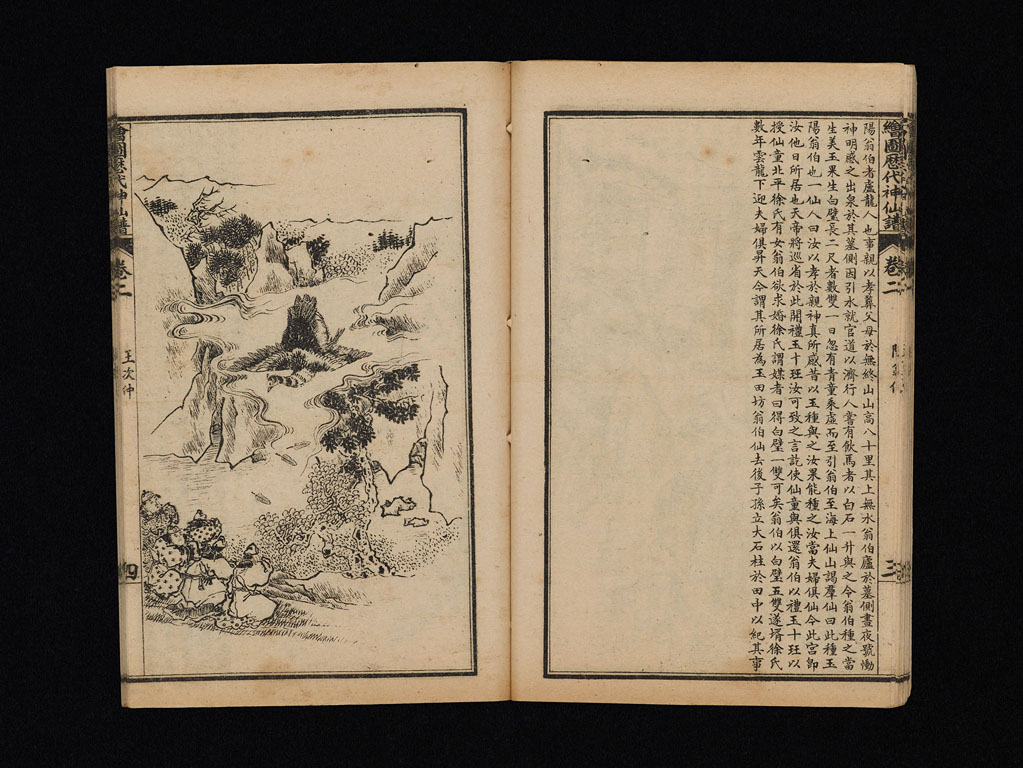 繪圖歷代神仙譜
卷二
三
陽翁伯者盧龍人也事親以孝葬父母於無終山山高八十里其上無水翁伯廬於墓側晝夜號慟
神明感之出泉於其墓側因引水就官道以濟行人嘗有飲馬者以白石一升與之令翁伯種之當
生美玉果生白璧長二尺者數雙一日忽有青童乘虛而至引翁伯至海上仙山謁羣仙曰此種玉
陽翁伯也一仙人曰汝以孝於親神真所感昔以玉種與之汝果能種之汝當夫婦俱仙今此宮卽
汝他日所居也天帝將巡省於此開禮玉十班汝可致之言訖使仙童與俱還翁伯以禮玉十班以
授仙童北平徐氏有女翁伯欲求婚徐氏謂媒者曰得白璧一雙可矣翁伯以白璧五雙遂壻徐氏
數年雲龍下迎夫婦俱昇天今謂其所居為玉田坊翁伯仙去後子孫立大石柱於田中以紀其事
繪圖歷代神仙譜
卷二
王次仲
四